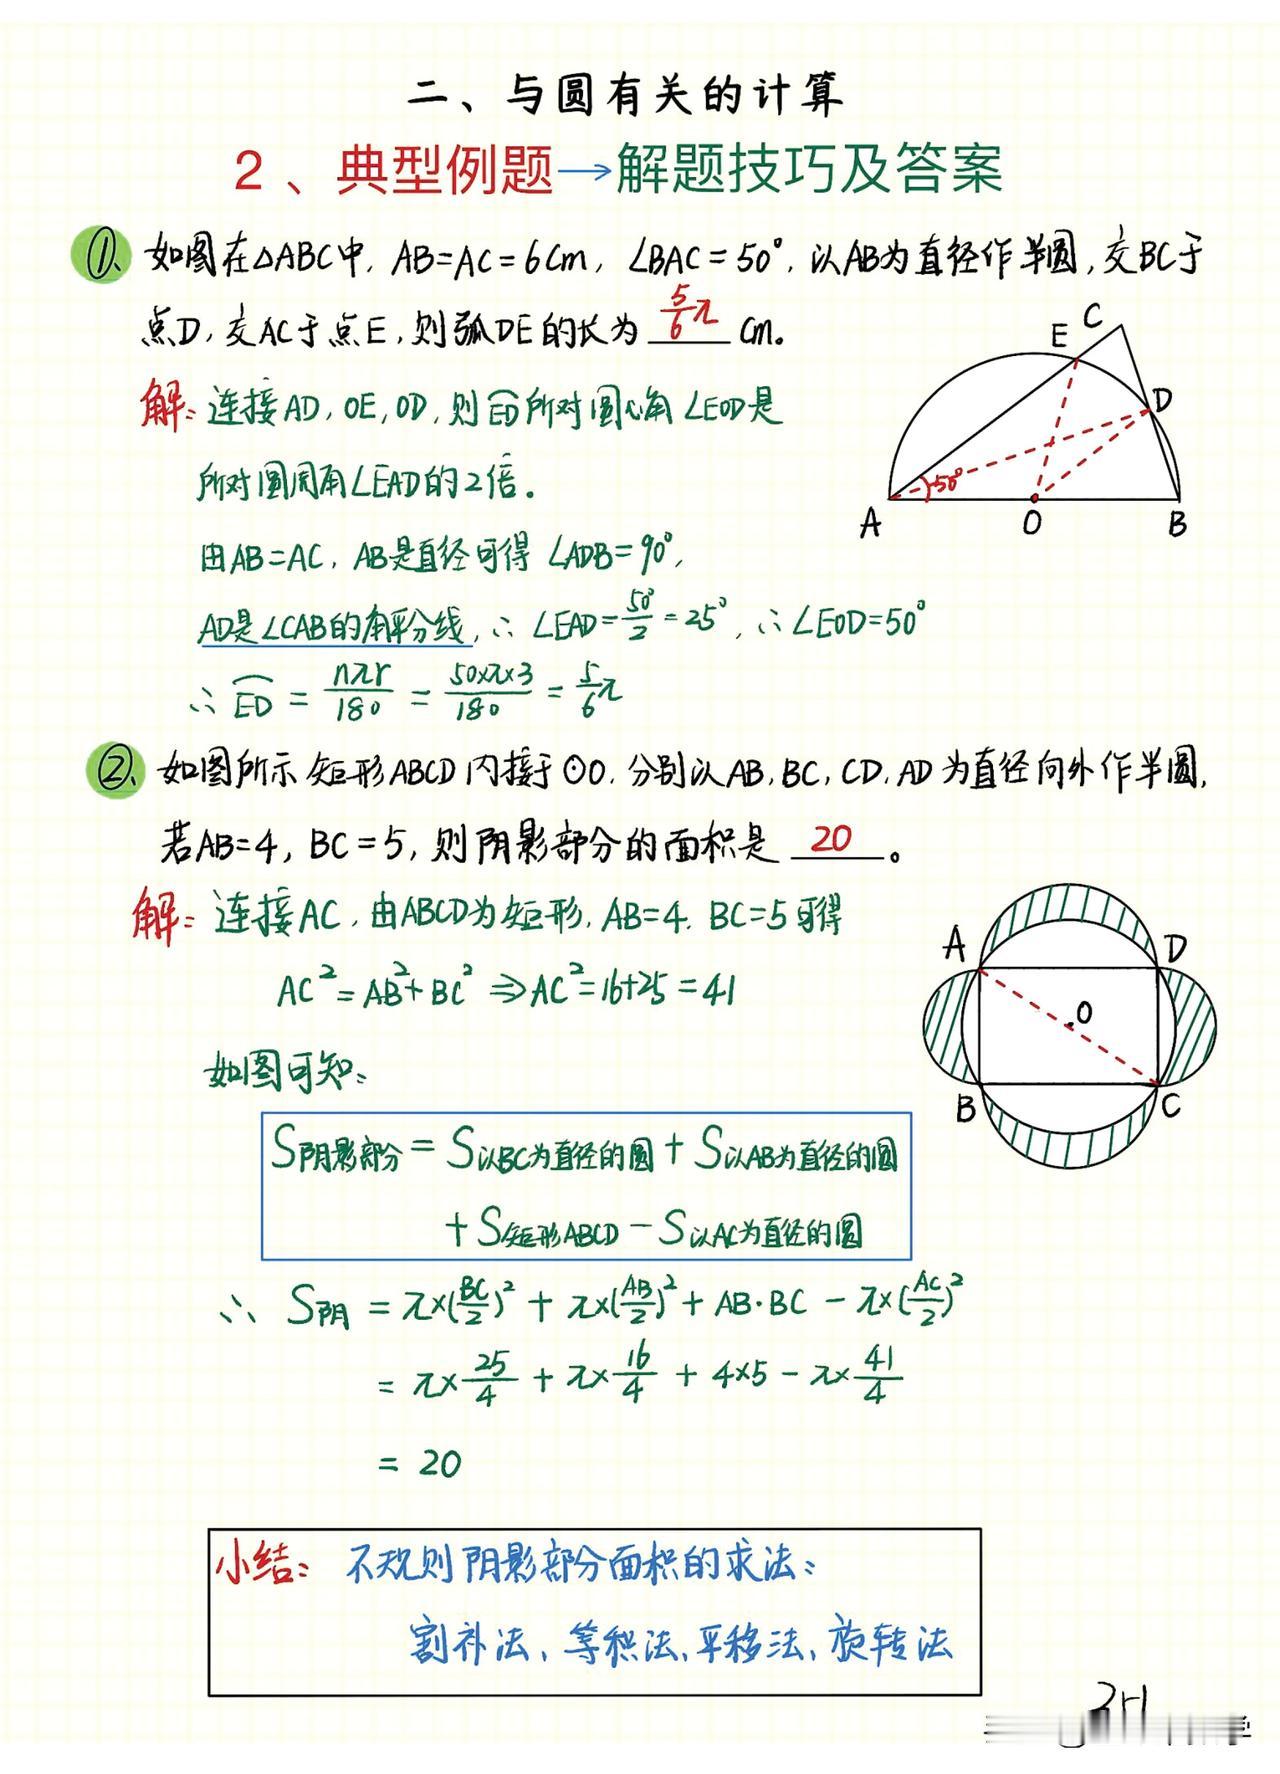 二、与圆有关的计算
2、典型例题→解题技巧及答案
①、如图在△ABC中, AB=AC=6cm, ∠BAC=50°, 以AB为直径作半圆, 交BC于
点D, 交AC于点E, 则弧DE的长为 5/6π cm。
解: 连接AD, OE, OD, 则 ED⌢ 所对圆心角∠EOD是
所对圆周角∠EAD的2倍。
由AB=AC, AB是直径可得∠ADB=90°,
AD是∠CAB的角平分线, ∴∠EAD=50°/2=25°, ∴∠EOD=50°
∴ ED⌢ = nπr/180 = 50×π×3/180 = 5/6π
E C
D
50°
A O B
②、如图所示矩形ABCD内接于⊙O, 分别以AB, BC, CD, AD为直径向外作半圆,
若AB=4, BC=5, 则阴影部分的面积是 20 。
解: 连接AC, 由ABCD为矩形, AB=4. BC=5可得
AC²=AB²+BC² ⇒AC²=16+25=41
如图可知:
A D
O
B C
S阴影部分=S以BC为直径的圆+S以AB为直径的圆
+S矩形ABCD-S以AC为直径的圆
∴ S阴 = π×(BC/2)² + π×(AB/2)² + AB·BC - π×(AC/2)²
= π×25/4 + π×16/4 + 4×5 - π×41/4
= 20
小结: 不规则阴影部分面积的求法:
割补法、等积法、平移法、旋转法